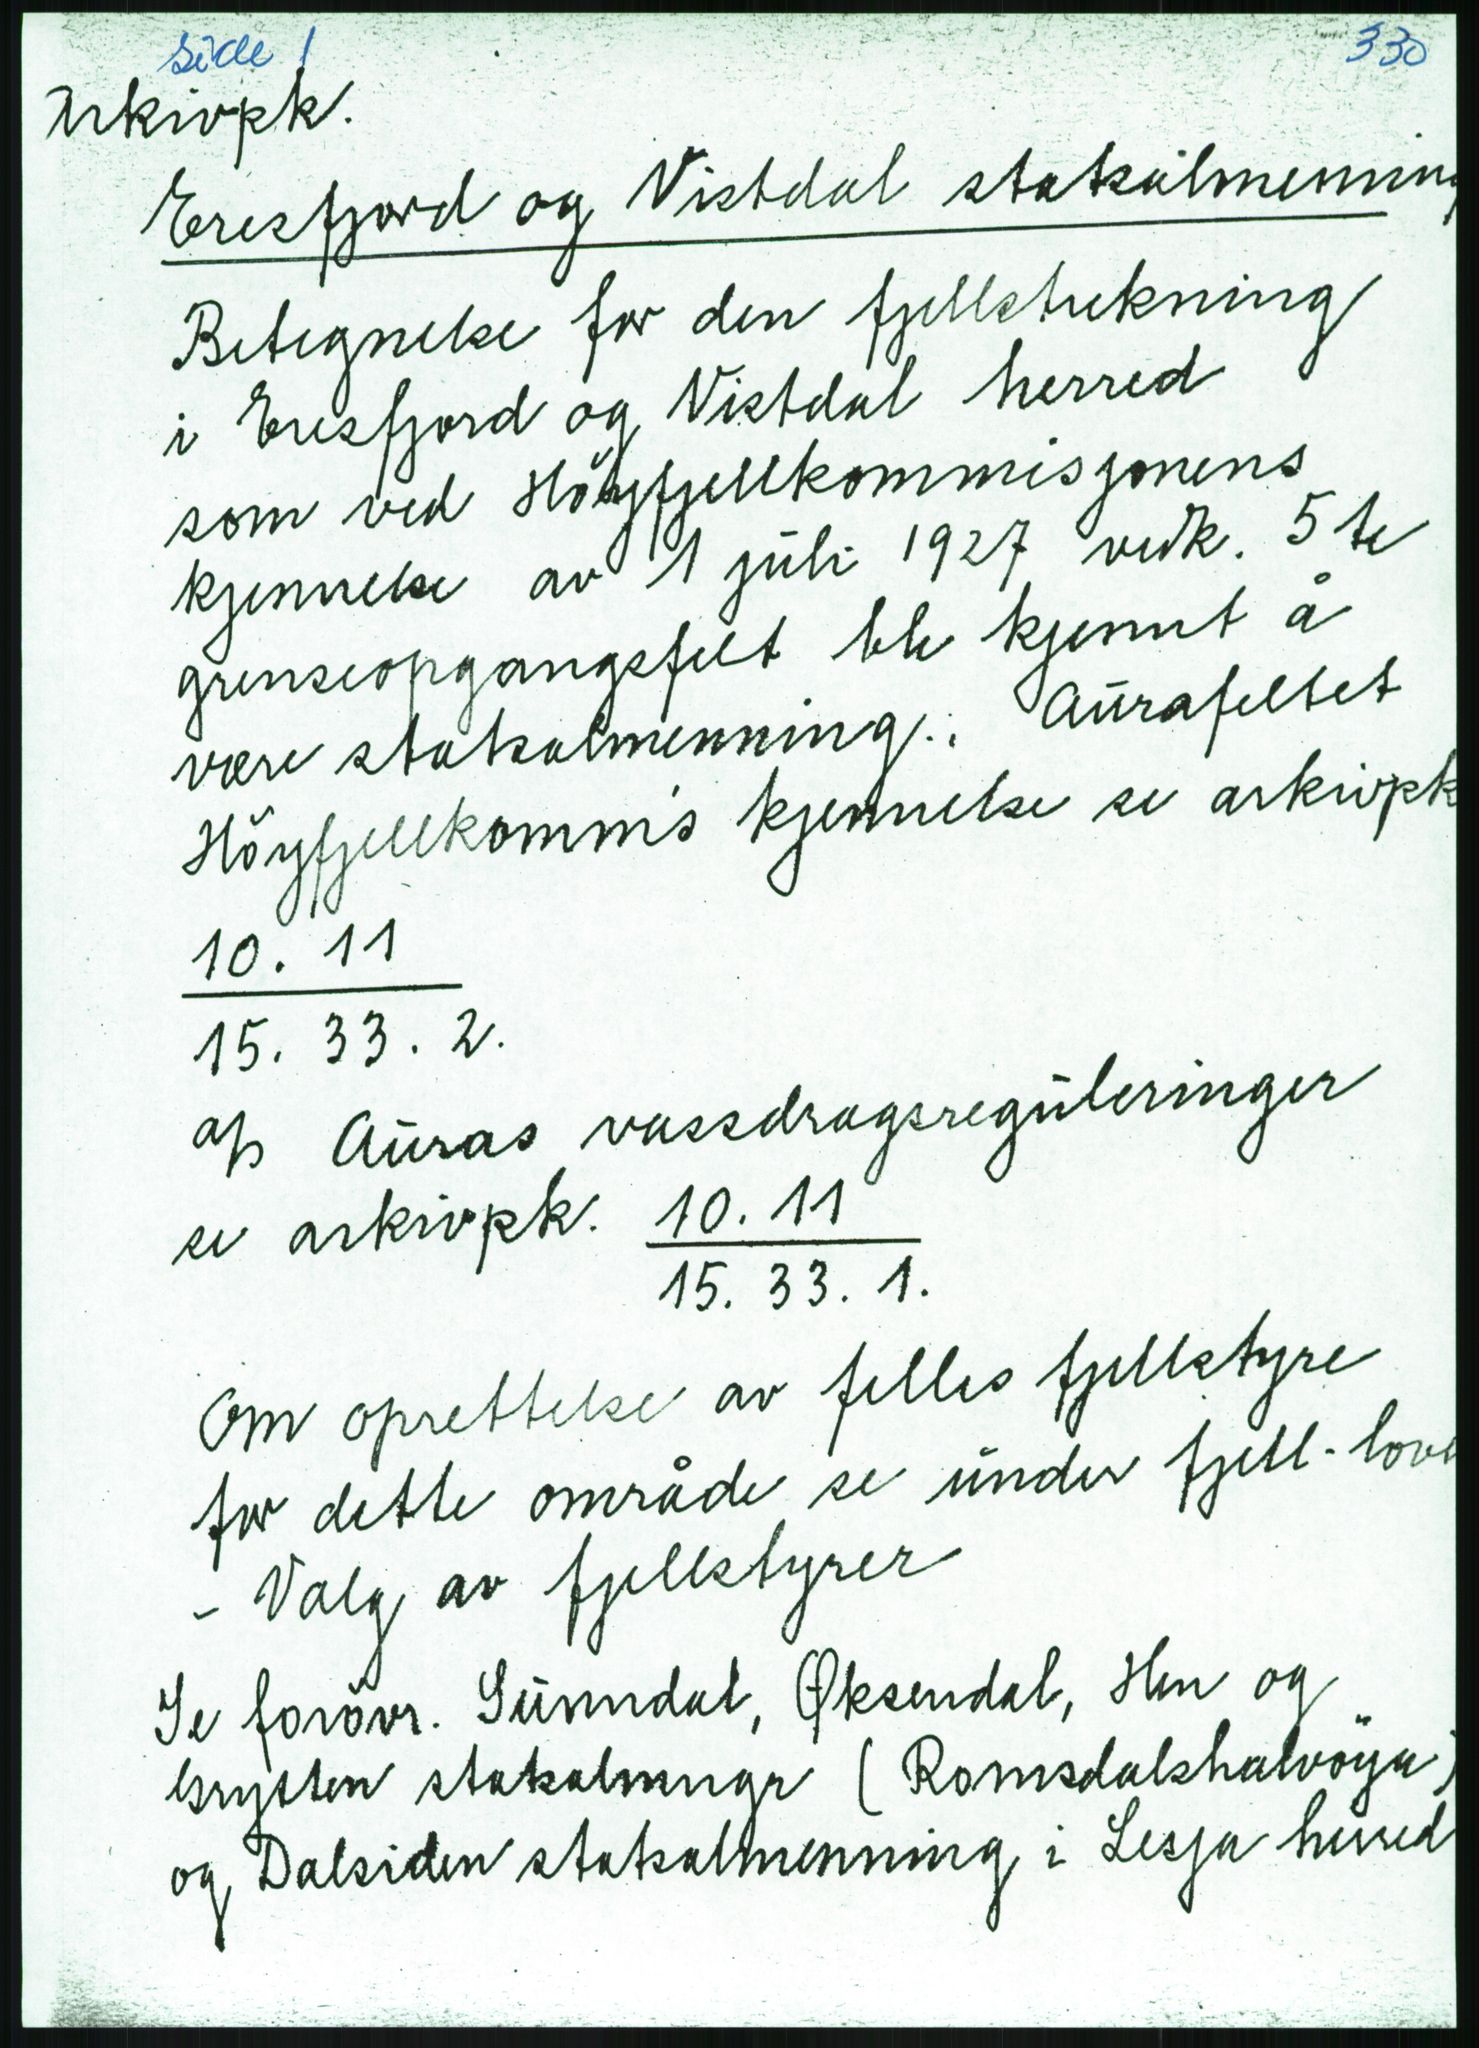 Side 1
330
Arkivpk.
Eresfjord og Vistdal statsalmenning
Betegnelse for den fjellstrekning
i Eresfjord og Vistdal herred
som ved Höyfjellkommisjonens
kjennelse av 1 juli 1927 vedk. 5te
grenseopgangsfelt ble kjennt å
være statsalmenning.. Aurafeltet
Höyfjellkomm's kjennelse se arkivpk
10. 11
15. 33. 2.
ap Auras vassdragsreguleringer
se arkivpk. 10. 11
15. 33. 1.
Om oprettelse av felles fjellstyre
for dette område se under fjell-love
- Valg av fjellstyrer
Se forövr. Sunndal, Øksendal, Hen og
Grytten statsalmngr (Romsdalshalvöya)
og Dalsiden statsalmenning i Lesja herred